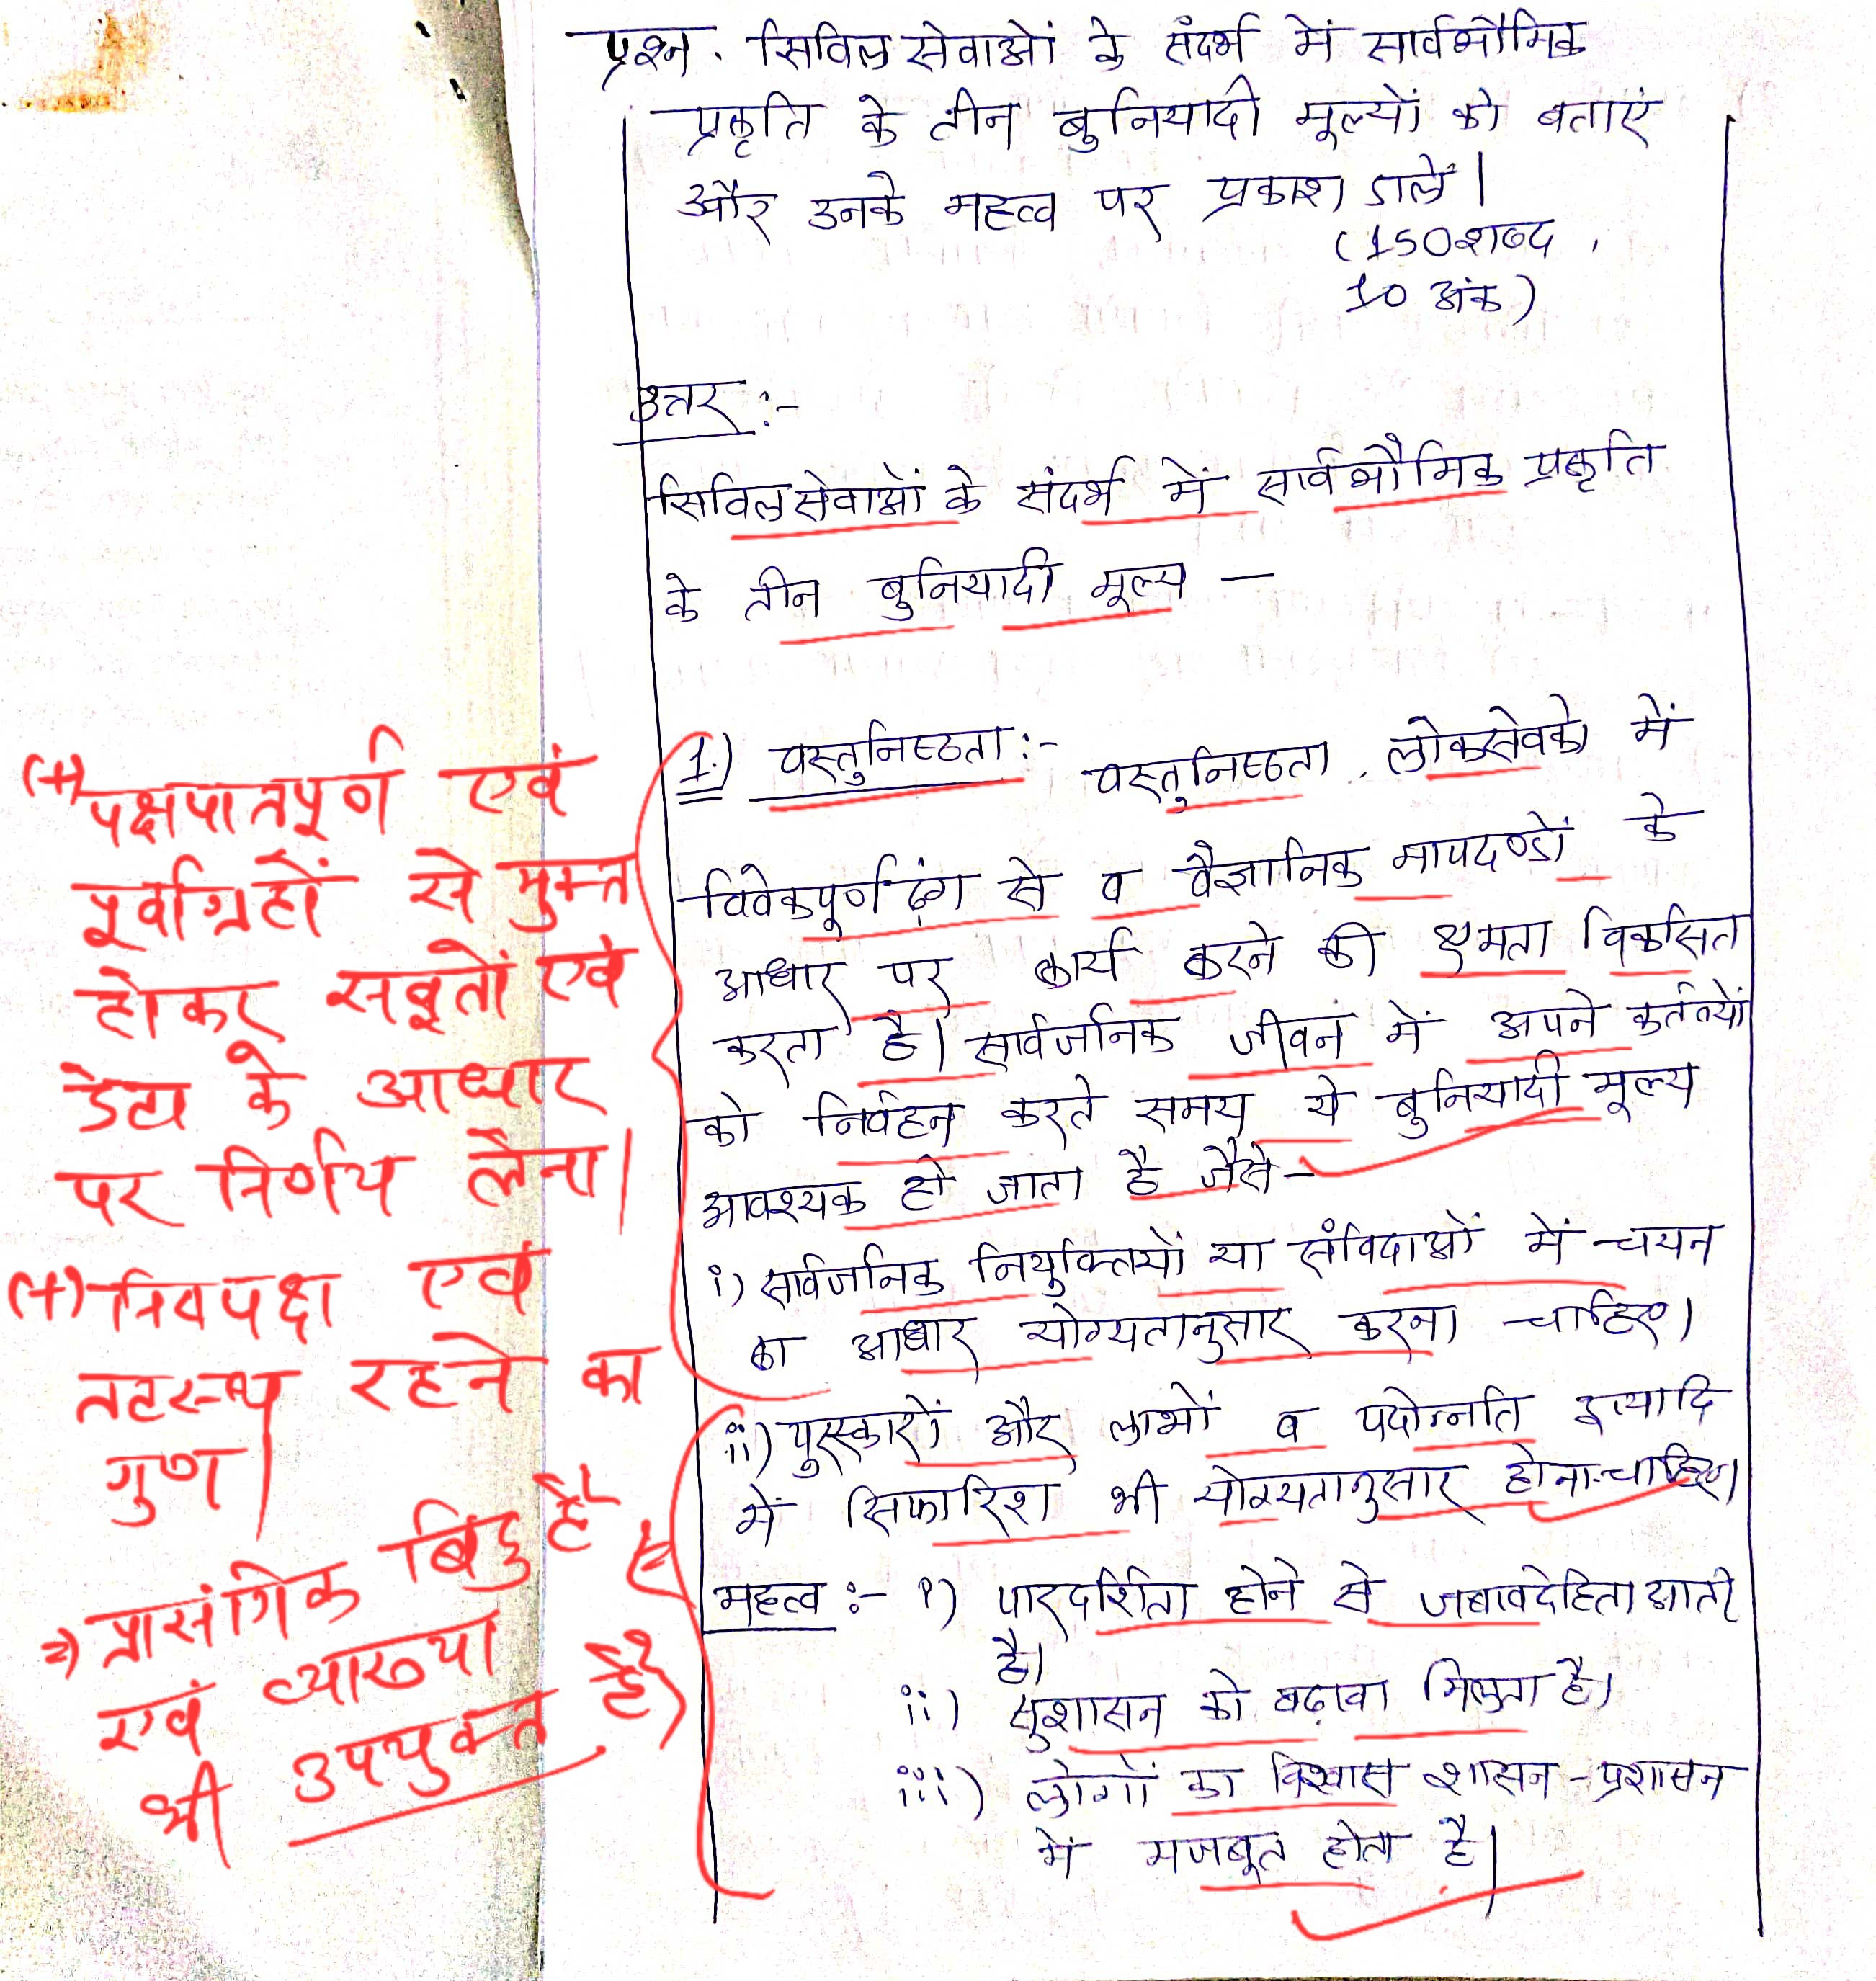 प्रश्न. सिविल सेवाओं के संदर्भ में सार्वभौमिक
प्रकृति के तीन बुनियादी मूल्यों को बताएं
और उनके महत्व पर प्रकाश डालें।
(150 शब्द,
10 अंक)
उत्तर :-
सिविल सेवाओं के संदर्भ में सार्वभौमिक प्रकृति
के तीन बुनियादी मूल्य –
1.) वस्तुनिष्ठता :- वस्तुनिष्ठता, लोकसेवको में
विवेकपूर्ण ढंग से व वैज्ञानिक मापदण्डों के
आधार पर कार्य करने की क्षमता विकसित
करता है। सार्वजनिक जीवन में अपने कर्तव्यों
को निर्वहन करते समय ये बुनियादी मूल्य
आवश्यक हो जाता है जैसे –
i) सार्वजनिक नियुक्तियों या संविदाओं में चयन
का आधार योग्यतानुसार करना चाहिए।
ii) पुरस्कारों और लाभों व पदोन्नति इत्यादि
में सिफारिश भी योग्यतानुसार होना चाहिए।
महत्व :- i) पारदर्शिता होने से जबावदेहिता आती
है।
ii) सुशासन को बढ़ावा मिलता है।
iii) लोगों का विश्वास शासन-प्रशासन
में मजबूत होता है।
(+) पक्षपातपूर्ण एवं
पूर्वाग्रहों से मुक्त
होकर सबूतों एवं
डेटा के आधार
पर निर्णय लेना।
(+) निवपक्ष एवं
तटस्थ रहने का
गुण।
⇒ प्रासंगिक बिंदु है
एवं व्याख्या
भी उपयुक्त है।